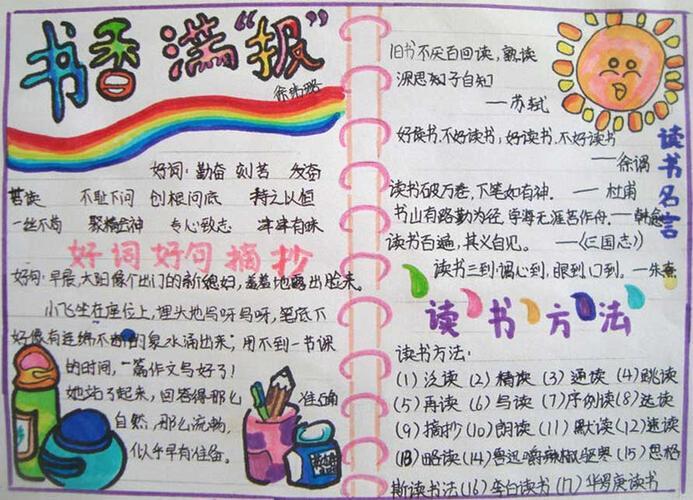 书香满“报”
好词：勤奋 刻苦 发奋
苦读 不耻下问 刨根问底 持之以恒
一丝不苟 聚精会神 专心致志 津津有味
好词好句摘抄
好句：早晨，太阳像个出门的新媳妇，羞羞地露出脸来。
小飞坐在座位上，埋头地写呀写呀，笔底下
好像有连绵不断的泉水涌出来；用不到一节课
的时间，一篇作文写好了！
她站了起来，回答得那么准确
自然，那么流畅，
似乎早有准备。
旧书不厌百回读，熟读
深思知子自知
——苏轼
好读书，不好读书；好读书，不好读书
——徐渭
读书破万卷，下笔如有神。——杜甫
书山有路勤为径，学海无涯苦作舟。——韩愈
读书百遍，其义自见。——《三国志》
读书三到：谓心到，眼到，口到。——朱熹
读书名言
读书方法
读书方法：
(1) 泛读 (2) 精读 (3) 通读 (4) 跳读
(5) 再读 (6) 写读 (7) 序例读 (8) 选读
(9) 摘抄 (10) 朗读 (11) 默读 (12) 速读
(13) 略读 (14) 鲁迅嚼辣椒驱寒 (15) 思格
斯读书法 (16) 李白读书 (17) 华罗庚读书